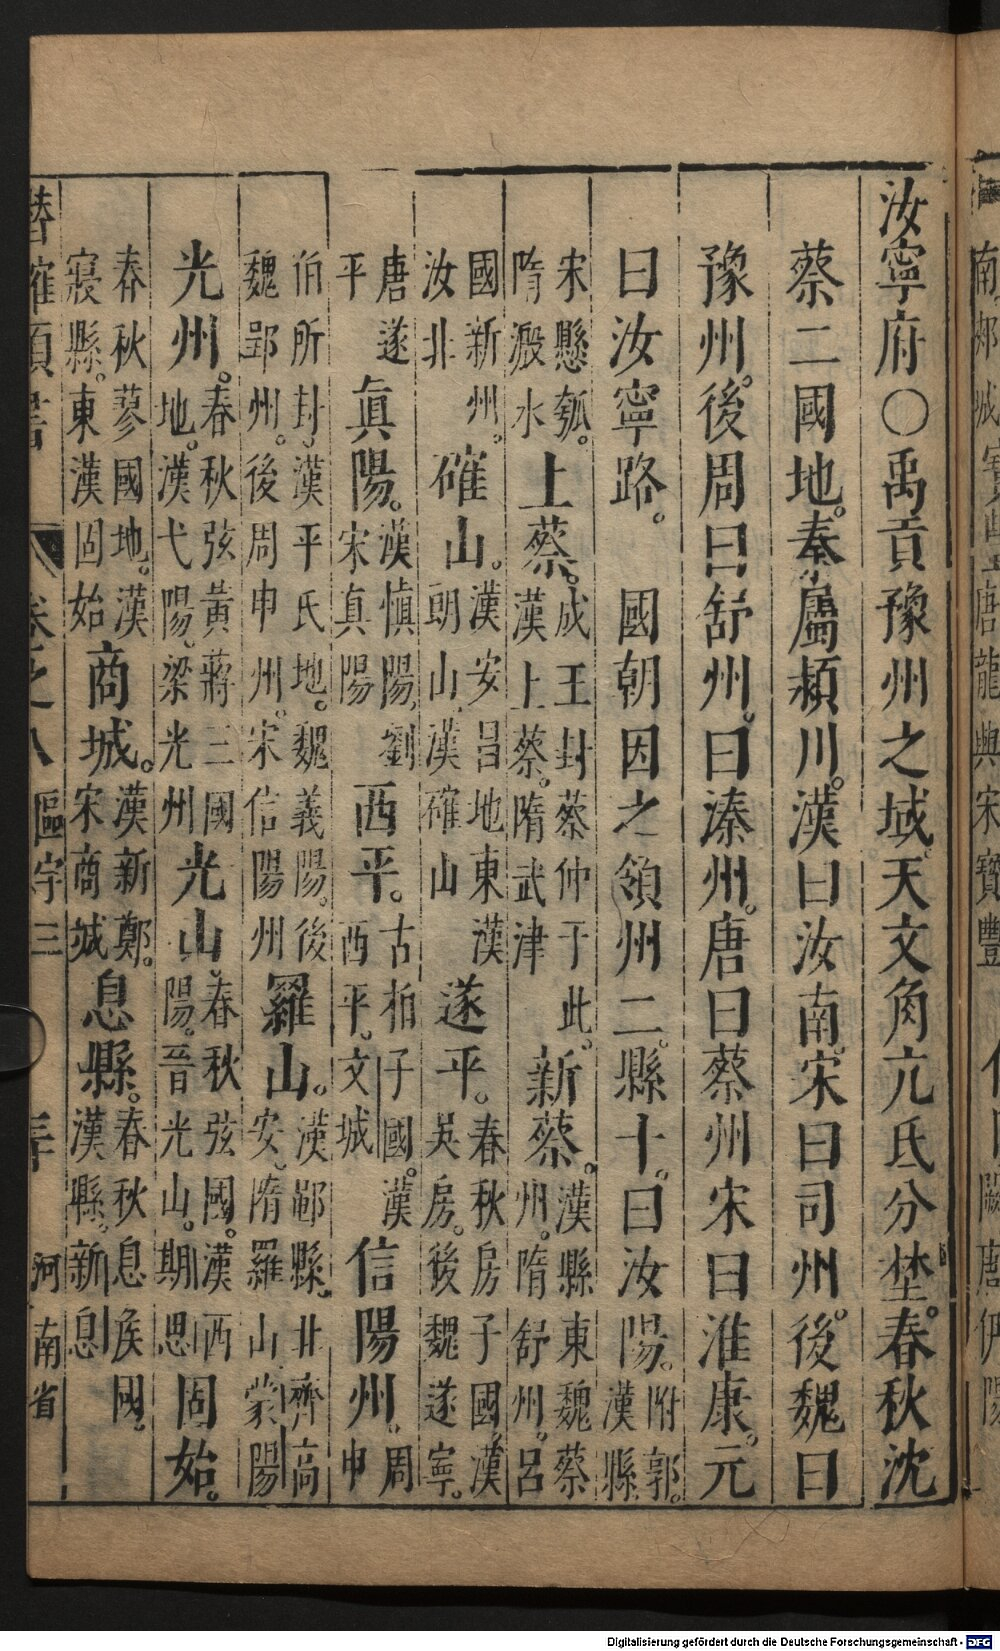 汝寧府○禹貢豫州之域天文角亢氐分埜。春秋沈
蔡二國地。秦屬潁川。漢曰汝南。宋曰司州。後魏曰
豫州。後周曰舒州。曰溱州。唐曰蔡州宋曰淮康。元
曰汝寧路。 國朝因之領州二。縣十。曰汝陽。附郭。漢縣
宋懸瓠。隋溵水 上蔡。成王封蔡仲于此。漢上蔡。隋武津 新蔡。漢縣東魏蔡州。隋舒州。呂
國新州。汝北 確山。漢安昌地東漢朗山。漢確山 遂平。春秋房子國。漢吳房。後魏遂寧。
唐遂平 眞陽。漢慎陽。劉宋真陽 西平。古柏子國。漢西平。文城 信陽州。周申
伯所封漢平氏地。魏義陽。後魏郢州。後周申州。宋信陽州 羅山。漢鄳縣。北齊高安。隋羅山蒙陽
光州。春秋弦黃蔣三國地。漢弋陽。梁光州 光山。春秋弦國。漢西陽。晉光山。期思 固始。
春秋蓼國地。漢寢縣。東漢固始 商城。漢新鄭。宋商城 息縣。春秋息侯國。漢縣。新息
潛確類書 卷之八 區宇三 河南省
Digitalisierung gefördert durch die Deutsche Forschungsgemeinschaft - DFG